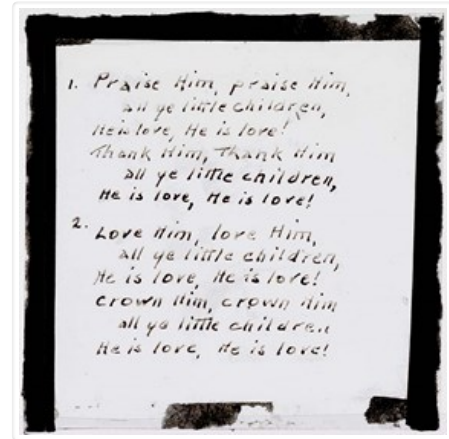 1. Praise Him, praise Him,
all ye little children,
He is love, He is love!
Thank Him, Thank Him
all ye little children,
He is love, He is love!
2. Love Him, love Him,
all ye little children,
He is love, He is love!
Crown Him, crown Him
all ye little children
He is love, He is love!